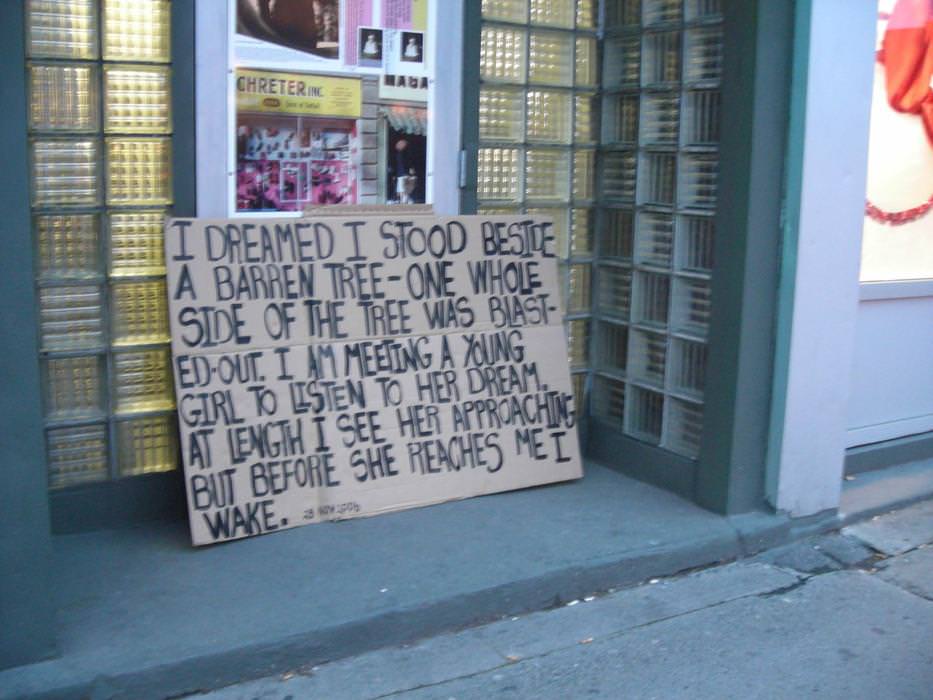 CHRETER INC.
I DREAMED I STOOD BESIDE
A BARREN TREE-ONE WHOLE
SIDE OF THE TREE WAS BLAST-
ED-OUT. I AM MEETING A YOUNG
GIRL TO LISTEN TO HER DREAM.
AT LENGTH I SEE HER APPROACHING
BUT BEFORE SHE REACHES ME I
WAKE. 28 NOV 2006